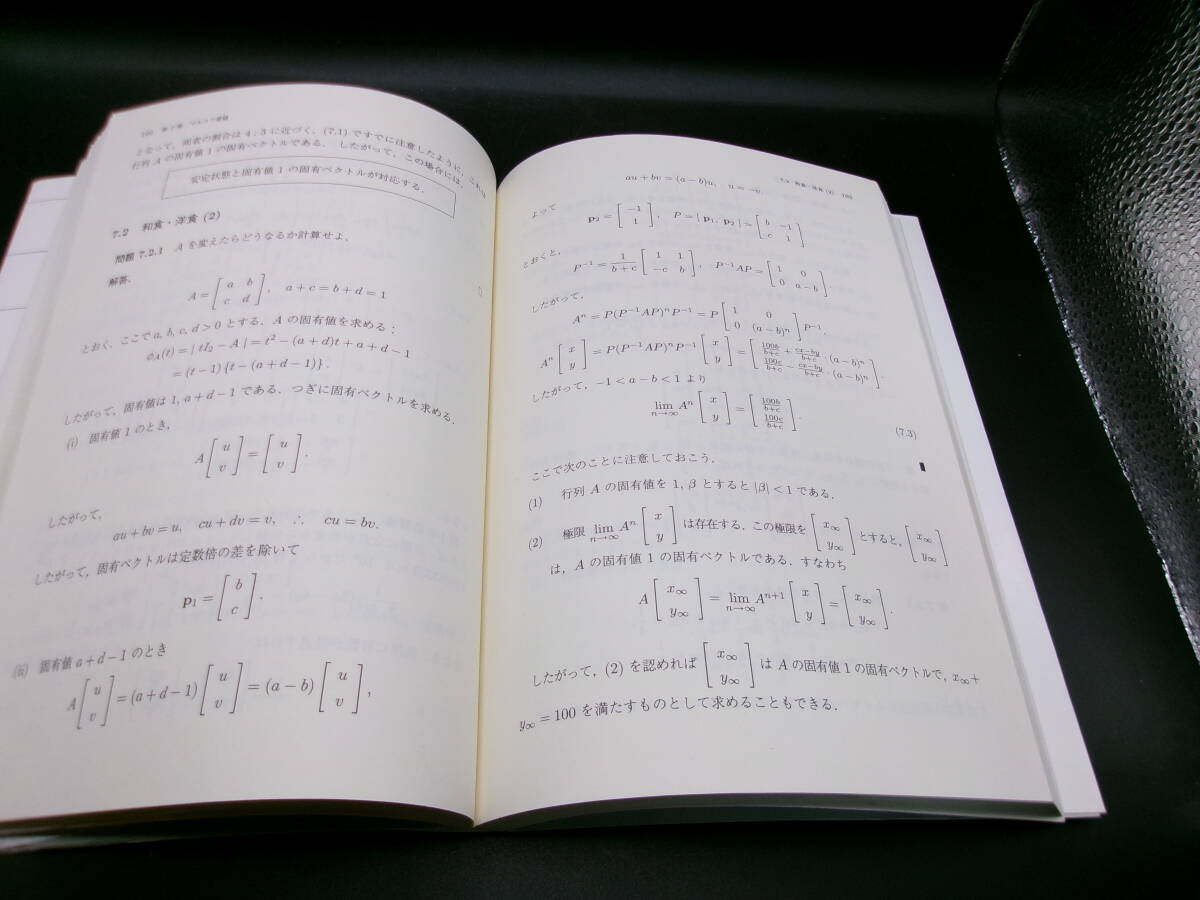 となって，両者の割合は 4 : 3 に近づく．(7.1) ですでに注意したように，これは
行列 A の固有値 1 の固有ベクトルである． したがって，この場合には，
安定状態と固有値 1 の固有ベクトルが対応する．
7.2 和食・洋食 (2)
問題 7.2.1 A を変えたらどうなるか計算せよ．
解答．
A = [ a b ; c d ], a + c = b + d = 1
とおく．ここで a, b, c, d > 0 とする．A の固有値を求める：
φA(t) = | tI₂ − A | = t² − (a + d)t + a + d − 1
= (t − 1) {t − (a + d − 1)} .
したがって，固有値は 1, a + d − 1 である．つぎに固有ベクトルを求める．
(i) 固有値 1 のとき，
A [ u ; v ] = [ u ; v ] .
したがって，
au + bv = u, cu + dv = v, ∴ cu = bv.
したがって，固有ベクトルは定数倍の差を除いて
p₁ = [ b ; c ] .
(ii) 固有値 a + d − 1 のとき
A [ u ; v ] = (a + d − 1) [ u ; v ] = (a − b) [ u ; v ] ,
au + bv = (a − b)u, u = −v.
よって
p₂ = [ −1 ; 1 ] , P = | p₁, p₂ | = [ b −1 ; c 1 ]
とおくと，
P⁻¹ = 1/(b + c) [ 1 1 ; −c b ] , P⁻¹AP = [ 1 0 ; 0 a − b ] .
したがって，
Aⁿ = P(P⁻¹AP)ⁿP⁻¹ = P [ 1 0 ; 0 (a − b)ⁿ ] P⁻¹,
Aⁿ [ x ; y ] = P(P⁻¹AP)ⁿP⁻¹ [ x ; y ] = [ 100b/(b+c) + (cx−by)/(b+c) · (a − b)ⁿ ; 100c/(b+c) − (cx−by)/(b+c) · (a − b)ⁿ ] .
したがって，−1 < a − b < 1 より
lim n→∞ Aⁿ [ x ; y ] = [ 100b/(b+c) ; 100c/(b+c) ] .
(7.3)
ここで次のことに注意しておこう．
(1) 行列 A の固有値を 1, β とすると |β| < 1 である．
(2) 極限 lim n→∞ Aⁿ [ x ; y ] は存在する．この極限を [ x∞ ; y∞ ] とすると，[ x∞ ; y∞ ]
は，A の固有値 1 の固有ベクトルである．すなわち
A [ x∞ ; y∞ ] = lim n→∞ Aⁿ⁺¹ [ x ; y ] = [ x∞ ; y∞ ] .
したがって，(2) を認めれば [ x∞ ; y∞ ] は A の固有値 1 の固有ベクトルで，x∞ +
y∞ = 100 を満たすものとして求めることもできる．